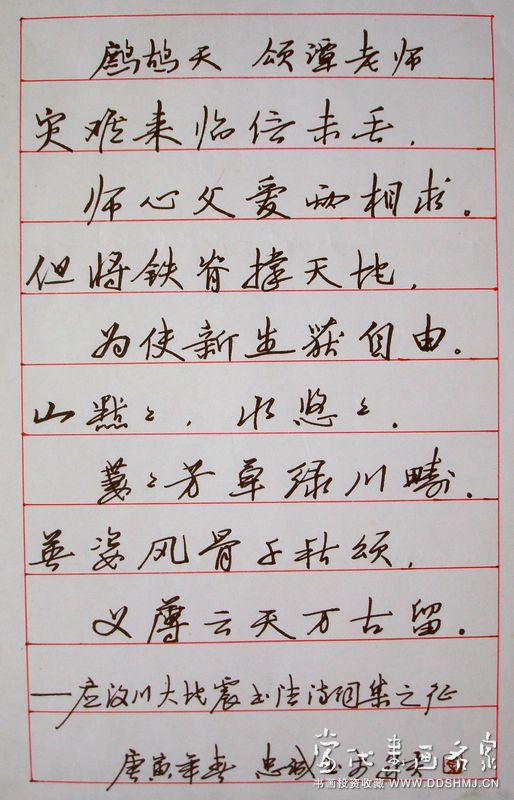 鹧鸪天 颂谭老师
灾难来临信未丢,
师心父爱两相求。
但将铁脊撑天地,
为使新生获自由。
山黙〻,水悠〻.
萋〻芳草绿川畴.
英姿风骨千秋颂,
义薄云天万古留。
——应汶川大地震书法诗词集之征
庚寅年春 忠诚
当代书画名家
书画投资收藏 WWW.DDSHMJ.CN